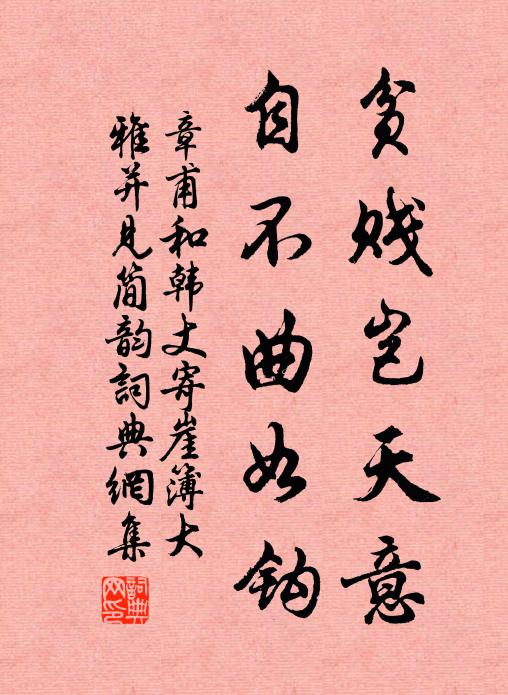 贫贱岂天意
自不曲如钩
章甫和韩丈寄崖簿大
雅并見简韵詞典網集
詞典网印